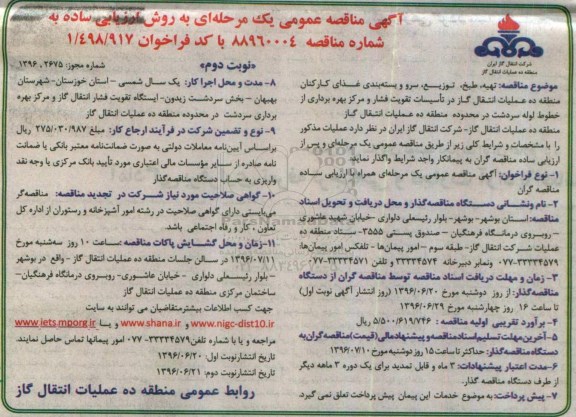 آگهی مناقصه عمومی یک مرحله‌ای به روش ارزیابی ساده به
شماره مناقصه ۸۸۹۶۰۰۰۴ با کد فراخوان ۱/۴۹۸/۹۱۷
شرکت انتقال گاز ایران
منطقه ده عملیات انتقال گاز
«نوبت دوم»
شماره مجوز: ۲۶۷۵ . ۱۳۹۶
موضوع مناقصه: تهیه، طبخ، توزیع، سرو و بسته‌بندی غذای کارکنان
منطقه ده عملیات انتقال گاز در تأسیسات تقویت فشار و مرکز بهره برداری از
خطوط لوله سردشت در محدوده منطقه ده عملیات انتقال گاز
منطقه ده عملیات انتقال گاز- شرکت انتقال گاز ایران در نظر دارد عملیات مذکور
را با مشخصات و شرایط کلی زیر از طریق مناقصه عمومی یک مرحله‌ای و پس از
ارزیابی ساده مناقصه گران به پیمانکار واجد شرایط واگذار نماید
۱- نوع فراخوان: آگهی مناقصه عمومی یک مرحله‌ای همراه با ارزیابی ساده
مناقصه گران
۲- نام ونشانی دستگاه مناقصه‌گذار و محل دریافت و تحویل اسناد
مناقصه: استان بوشهر- بوشهر- بلوار رئیسعلی دلواری -خیابان شهید عاشوری
- روبروی درمانگاه فرهنگیان – صندوق پستی ۳۵۵۵- ستاد منطقه ده
عملیات شرکت انتقال گاز- طبقه سوم –امور پیمان‌ها - تلفکس امور پیمان‌ها:
۰۷۷-۳۳۳۳۴۵۷۹ نمابر دبیرخانه ۳۳۳۳۴۵۷۴ و تلفن ۳۳۳۳۴۵۷۱-۰۷۷
۳- زمان و مهلت دریافت اسناد مناقصه توسط مناقصه گران از دستگاه
مناقصه‌گذار: از روز دوشنبه مورخ ۱۳۹۶/۰۶/۲۰ (روز انتشار آگهی نوبت اول)
تا ساعت ۱۶ روز چهارشنبه مورخ ۱۳۹۶/۰۶/۲۹
۴- برآورد تقریبی اولیه مناقصه: ۵/۵۰۰/۶۱۹/۷۴۶ ریال
۵- آخرین مهلت تسلیم اسناد مناقصه و پیشنهاد مالی (قیمت) مناقصه گران به
دستگاه مناقصه گذار: حداکثر تا ساعت ۱۵ روز دوشنبه مورخ ۱۳۹۶/۰۷/۱۰
۶- مدت اعتبار پیشنهادات: ۳ ماه و قابل تمدید برای یک دوره ۳ ماهه دیگر
از طرف دستگاه مناقصه گذار.
۷- پیش پرداخت: به موضوع خدمات این پیمان پیش پرداخت تعلق نمی گیرد.
۸- مدت و محل اجرا کار: یک سال شمسی – استان خوزستان– شهرستان
بهبهان – بخش سردشت زیدون- ایستگاه تقویت فشار انتقال گاز و مرکز بهره
برداری سردشت در محدوده منطقه ده عملیات انتقال گاز
۹- نوع و تضمین شرکت در فرآیند ارجاع کار: مبلغ ۲۷۵/۰۳۰/۹۸۷ ریال
براساس آیین‌نامه معاملات دولتی به صورت ضمانت‌نامه معتبر بانکی یا ضمانت
نامه صادره از سایر مؤسسات مالی اعتباری مورد تأیید بانک مرکزی یا وجه نقد
واریزی به حساب دستگاه مناقصه‌گذار
۱۰- گواهی صلاحیت مورد نیاز شرکت در تجدید مناقصه: مناقصه‌گر
می‌بایستی دارای گواهی صلاحیت در رشته امور آشپزخانه و رستوران از اداره کل
تعاون ، کار و رفاه اجتماعی باشد.
۱۱-زمان و محل گشایش پاکات مناقصه: ساعت ۱۰ روز سه‌شنبه مورخ
۱۳۹۶/۰۷/۱۱ در سالن جلسات منطقه ده عملیات انتقال گاز - واقع در بوشهر
– بلوار رئیسعلی دلواری - خیابان عاشوری- روبروی درمانگاه فرهنگیان–
ساختمان مرکزی منطقه ده عملیات انتقال گاز
جهت کسب اطلاعات بیشتر متقاضیان می توانند به سایت
www.nigc-dist10.ir و www.shana.ir و یا www.iets.mporg.ir
مراجعه و یا با شماره تلفن ۳۳۳۳۴۵۷۹-۰۷۷ امور پیمانها تماس حاصل نمایند.
تاریخ انتشار نوبت اول: ۱۳۹۶/۰۶/۲۰
تاریخ انتشار نوبت دوم: ۱۳۹۶/۰۶/۲۱
روابط عمومی منطقه ده عملیات انتقال گاز